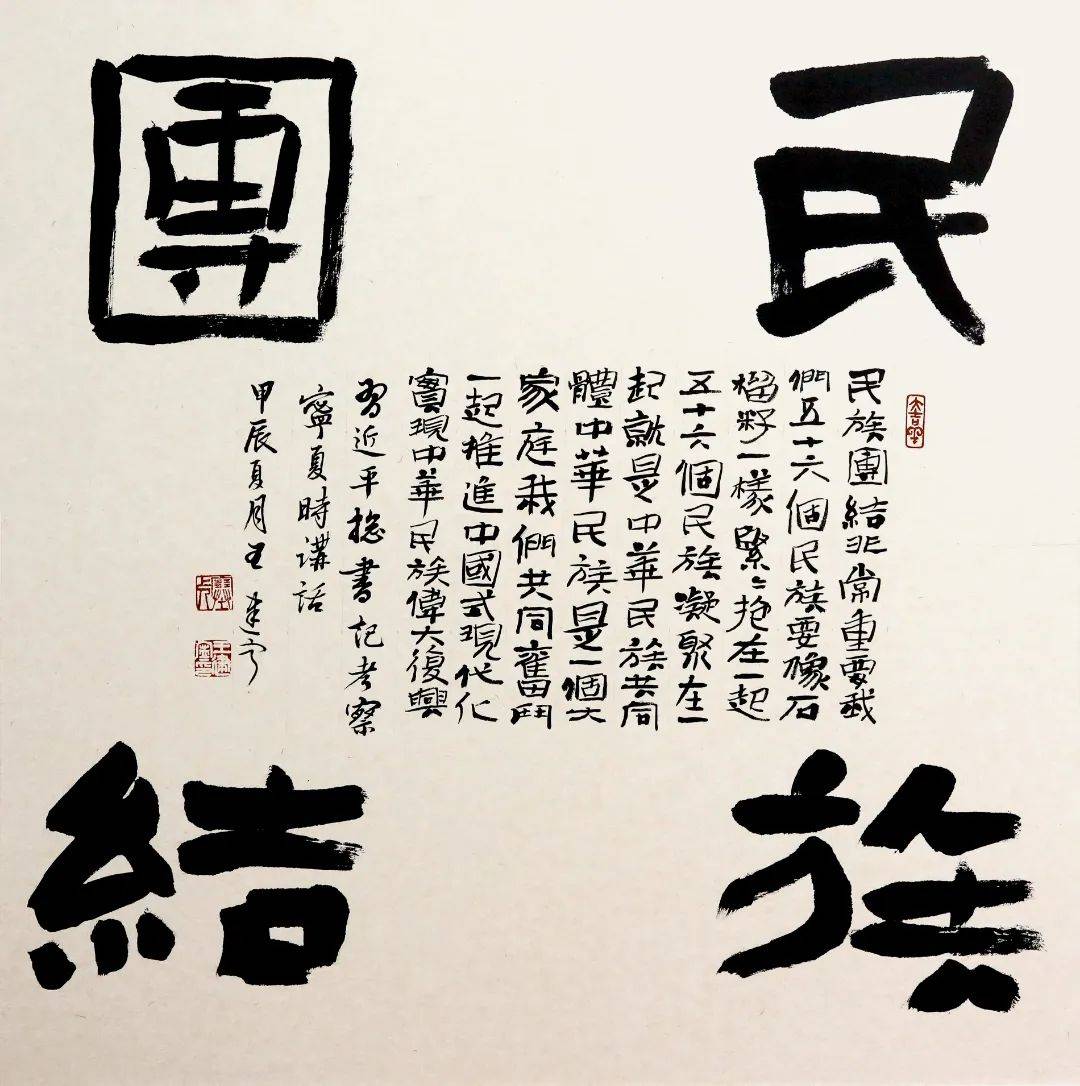 民族
團結
大吉羊
民族團結非常重要我
們五十六個民族要像石
榴籽一樣緊〻抱在一起
五十六個民族凝聚在一
起就是中華民族共同
體中華民族是一個大
家庭我們共同奮鬥
一起推進中國式現代化
實現中華民族偉大復興
習近平總書記考察
寧夏時講話
甲辰夏月王建